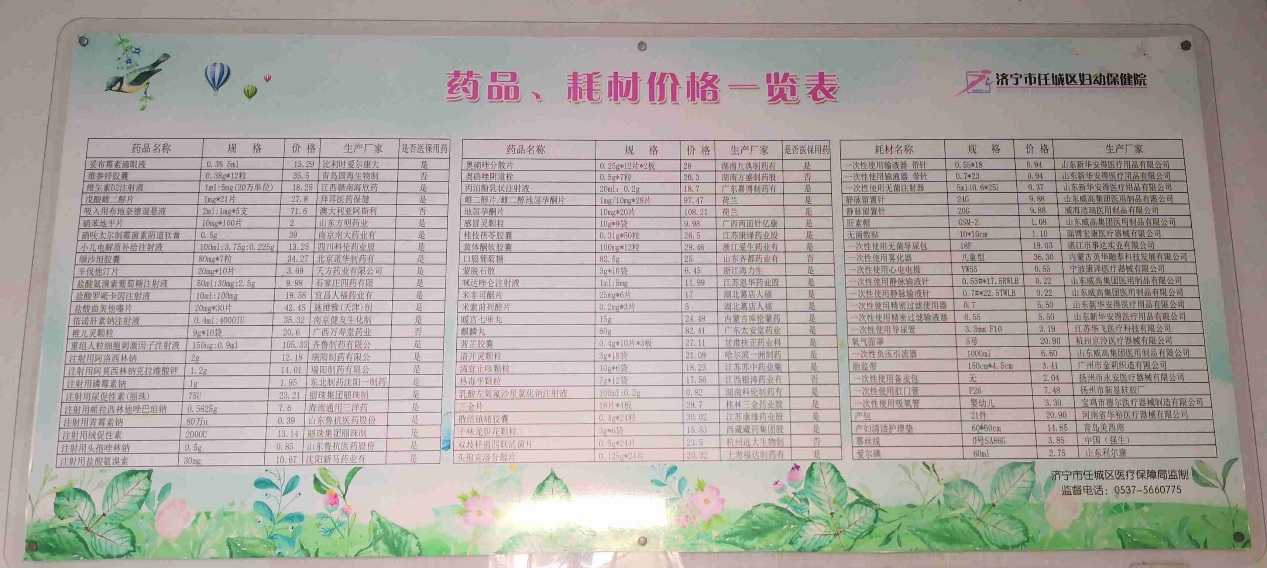 药品、耗材价格一览表
济宁市任城区妇幼保健院
药品名称 规 格 价 格 生产厂家 是否医保用药
妥布霉素滴眼液 0.3% 5ml 15.29 比利时爱尔康大 是
维参锌胶囊 0.38g*12粒 35.5 青岛国海生物制 否
维生素D2注射液 1ml:5mg(20万单位) 18.25 江西赣南海欣药 是
戊酸雌二醇片 1mg*21片 27.8 拜耳医药保健 是
吸入用布地奈德混悬液 2ml:1mg*5支 71.6 澳大利亚阿斯利 否
硝苯地平片 10mg*100片 2 山东方明药业 是
硝呋太尔制霉菌素阴道软膏 0.5g 39 南京南大药业有 是
小儿电解质补给注射液 100ml:3.75g:0.225g 13.25 四川科伦药业股 是
缬沙坦胶囊 80mg*7粒 34.27 北京诺华制药有 是
辛伐他汀片 20mg*10片 3.69 天方药业有限公司 是
盐酸氨溴索葡萄糖注射液 50ml:30mg:2.5g 9.98 石家庄四药有限 是
盐酸罗哌卡因注射液 10ml:100mg 19.56 宜昌人福药业有 是
盐酸曲美他嗪片 20mg*30片 42.45 施维雅(天津)制 是
依诺肝素钠注射液 0.4ml:4000IU 35.32 南京健友生化制 是
稚儿灵颗粒 9g*10袋 20.6 广西万寿堂药业 否
重组人粒细胞刺激因子注射液 150ug:0.9ml 105.33 齐鲁制药有限公 是
注射用阿洛西林钠 2g 12.18 瑞阳制药有限公 是
注射用阿莫西林钠克拉维酸钾 1.2g 14.01 瑞阳制药有限公 是
注射用磷霉素钠 1g 1.95 东北制药沈阳一制药 是
注射用尿促性素(丽珠) 75U 23.21 丽珠集团丽珠制 是
注射用哌拉西林他唑巴坦钠 0.5625g 7.6 海南通用三洋药 是
注射用青霉素钠 80万u 0.39 山东鲁抗医药股份 是
注射用绒促性素 2000U 13.14 丽珠集团丽珠制 是
注射用头孢唑林钠 0.5g 0.85 山东鲁抗医药股份 是
注射用盐酸氨溴索 30mg 10.67 沈阳新马药业有 是
药品名称 规 格 价 格 生产厂家 是否医保用药
奥硝唑分散片 0.25g*12片*2板 28 湖南九典制药有 是
奥硝唑阴道栓 0.5g*7粒 20.3 湖南方盛制药股 否
丙泊酚乳状注射液 20ml:0.2g 18.7 广东嘉博制药有 是
雌二醇片/雌二醇地屈孕酮片 1mg/10mg*28片 97.47 荷兰 是
地屈孕酮片 10mg*20片 108.21 荷兰 是
感冒灵颗粒 10g*9袋 9.98 广西两面针亿康 是
桂枝茯苓胶囊 0.31g*50粒 26.5 江苏康缘药业股 是
黄体酮软胶囊 100mg*12粒 29.46 浙江爱生药业有 是
口服葡萄糖 82.5g 25 山东齐都药业有 否
蒙脱石散 3g*10袋 6.45 浙江海力生 是
咪达唑仑注射液 1ml:5mg 11.99 江苏恩华药业股 是
米非司酮片 25mg*6片 17 湖北葛店人福 是
米索前列醇片 0.2mg*3片 5 湖北葛店人福 是
暖宫七味丸 15g 24.48 内蒙古库伦蒙药 是
麒麟丸 60g 82.41 广东太安堂药业 是
葡花胶囊 0.4g*10片*3板 27.11 甘肃扶正药业科 是
清开灵颗粒 3g*18袋 21.09 哈尔滨一洲制药 是
清宣止咳颗粒 10g*6袋 18.23 江苏苏中药业集 是
热毒平颗粒 7g*12袋 17.56 江西银涛药业有 否
乳酸左氧氟沙星氯化钠注射液 100ml:0.2g 0.82 湖南科伦制药有 是
三金片 18片*4板 29.7 桂林三金药业股 是
散结镇痛胶囊 0.4g*24粒 30.02 江苏康缘药业股 是
十味龙胆花颗粒 3g*6袋 15.83 西藏藏药集团股 是
双歧杆菌四联活菌片 0.5g*24片 23.5 杭州远大生物制 否
头孢克洛分散片 0.125g*24片 20.32 上海福达制药有 是
耗材名称 规 格 价 格 生产厂家
一次性使用输液器 带针 0.55*18 0.94 山东新华安得医疗用品有限公司
一次性使用输液器 带针 0.7*23 0.94 山东新华安得医疗用品有限公司
一次性使用无菌注射器 5ml(0.6*25) 0.37 山东新华安得医疗用品有限公司
静脉留置针 24G 9.88 山东威高集团医用制品有限公司
静脉留置针 20G 9.88 威海洁瑞医用制品有限公司
肝素帽 GSM-Z 1.08 山东威高集团医用制品有限公司
无菌敷贴 10*10cm 1.10 淄博宏康医疗器械有限公司
一次性使用无菌导尿包 18F 19.03 湛江市事达实业有限公司
一次性使用雾化器 儿童型 36.30 内蒙古英华融泰科技发展有限
一次性使用心电电极 YW55 0.55 宁波康泽医疗器械有限公司
一次性使用静脉输液针 0.55#*17.5RWLB 0.22 山东威高集团医用制品有限公司
一次性使用静脉输液针 0.7#*22.5TWLB 0.22 山东威高集团医用制品有限公司
一次性使用精密过滤使用器 0.7 5.50 山东新华安得医疗用品有限公司
一次性使用精密过滤输液器 0.55 5.50 山东新华安得医疗用品有限公司
一次性使用导尿管 3.3mm F10 3.19 江苏华飞医疗科技有限公司
氧气面罩 5号 20.90 杭州京泠医疗器械有限公司
一次性负压引流器 1000ml 6.60 山东威高集团医用制品有限公司
胎监带 150cm*4.5cm 3.41 广州市金莉织造有限公司
一次性使用备皮包 无 2.04 扬州市永安医疗器械有限公司
一次性使用肛门管 F26 7.48 扬州市新星硅胶厂
一次性使用吸氧管 婴幼儿 3.30 宝鸡市德尔医疗器械制造有限公司
产包 21件 20.90 河南省华裕医疗器械有限公司
产妇清洁护理垫 60*60cm 14.85 青岛美西南
慕丝线 0号SA86G 3.85 中国(强生)
爱尔碘 60ml 2.75 山东利尔康
济宁市任城区医疗保障局监制
监督电话：0537-5660775